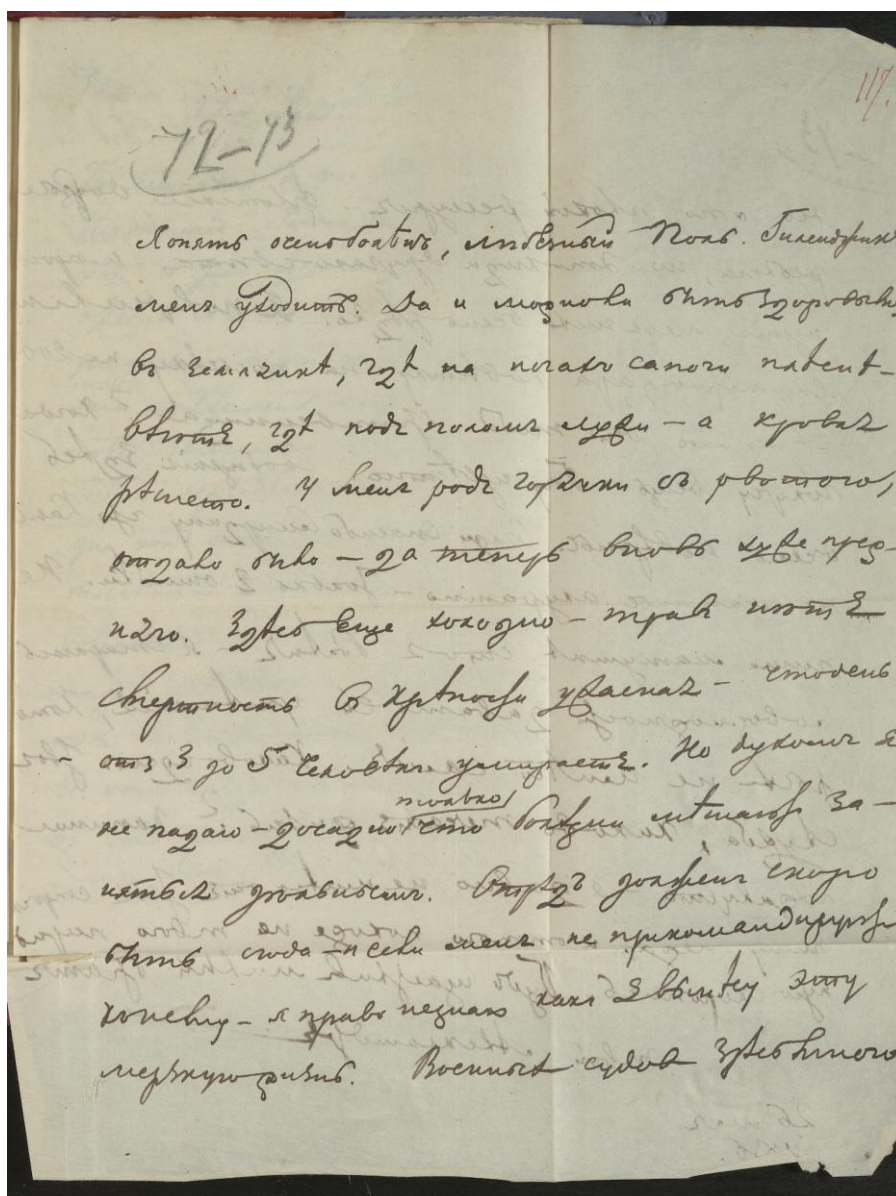 117.
72–73
Я опять очень болѣнъ, любезный Поль. Гиленджик
меня уходитъ. Да и можно ли быть здоровымъ
въ землянкѣ, гдѣ на ногахъ сапоги плѣснѣ-
вѣютъ, гдѣ подъ поломъ лужи – а кровля
рѣшето. У меня родъ горячки съ рвотою,
отдало было – да теперь вновь хуже преж-
няго. Здѣсь еще холодно – трав нѣтъ
Смертность въ крѣпости ужасная – что день
отъ 3 до 5 человѣкъ умираетъ. Но духомъ я
не падаю – досадно только что болѣзни мѣшаютъ за-
няться дѣломъ. Отрядъ долженъ скоро
быть сюда – и если меня не прикомандируютъ
къ нему – я право не знаю какъ я вынесу эту
мерзкую жизнь. Военныхъ судовъ здѣсь много